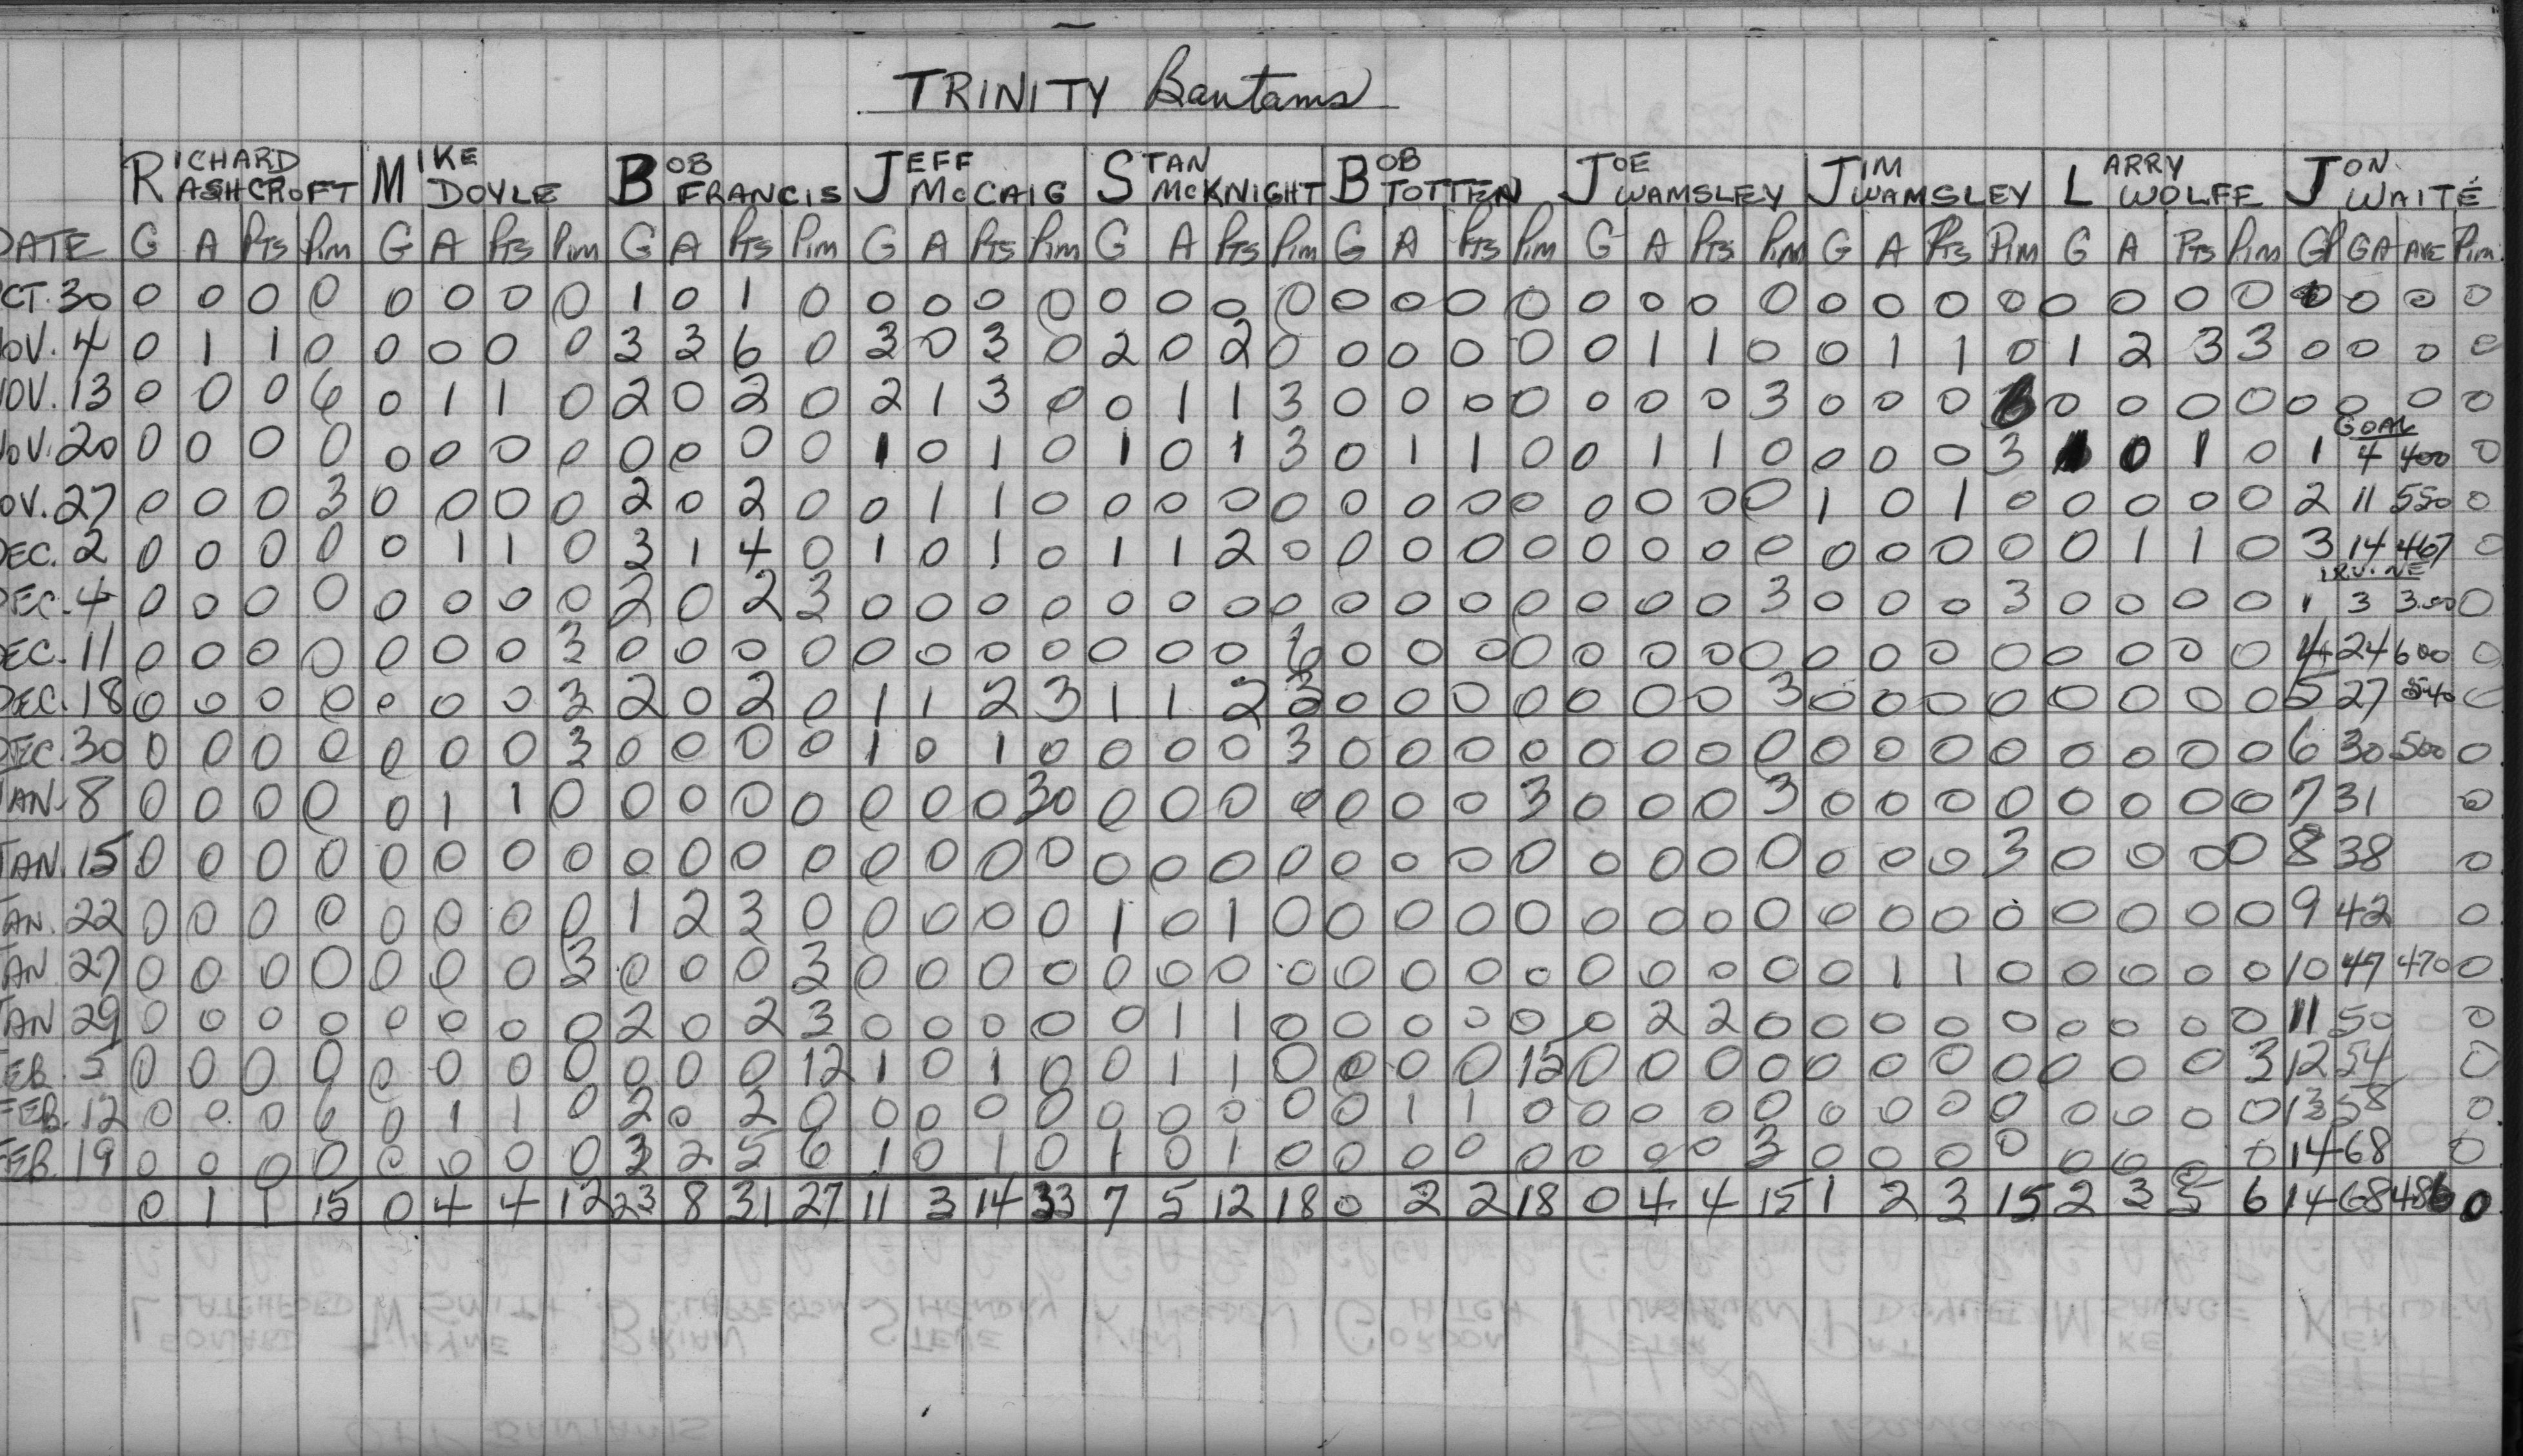 TRINITY Bantams
RICHARD ASHCROFT MIKE DOYLE BOB FRANCIS JEFF McCAIG STAN McKNIGHT BOB TOTTEN JOE WAMSLEY JIM WAMSLEY LARRY WOLFE JON WAITE
DATE G A Pts Pim G A Pts Pim G A Pts Pim G A Pts Pim G A Pts Pim G A Pts Pim G A Pts Pim G A Pts Pim G A Pts Pim GP GA AVE Pim
CT. 30 0 0 0 0 0 0 0 0 1 0 1 0 0 0 0 0 0 0 0 0 0 0 0 0 0 0 0 0 0 0 0 0 0 0 0 0 0 0 0 0
OV. 4 0 1 1 0 0 0 0 0 3 3 6 0 3 0 3 0 2 0 2 0 0 0 0 0 0 1 1 0 0 1 1 0 1 2 3 3 0 0 0 0
OV. 13 0 0 0 6 0 1 1 0 2 0 2 0 2 1 3 0 0 1 1 3 0 0 0 0 0 0 0 3 0 0 0 0 0 0 0 0 0 0 0
GOAL
OV. 20 0 0 0 0 0 0 0 0 0 0 0 0 1 0 1 0 1 0 1 3 0 1 1 0 0 1 1 0 0 0 0 3 1 0 1 0 1 4 400 0
OV. 27 0 0 0 3 0 0 0 0 2 0 2 0 0 1 1 0 0 0 0 0 0 0 0 0 0 0 0 0 1 0 1 0 0 0 0 0 2 11 550 0
DEC. 2 0 0 0 0 0 1 1 0 3 1 4 0 1 0 1 0 1 1 2 0 0 0 0 0 0 0 0 0 0 0 0 0 0 1 1 0 3 14 467 0
IRVINE
EC. 4 0 0 0 0 0 0 0 0 2 0 2 3 0 0 0 0 0 0 0 0 0 0 0 0 0 0 0 3 0 0 0 3 0 0 0 0 1 3 3.00 0
EC. 11 0 0 0 0 0 0 0 3 0 0 0 0 0 0 0 0 0 0 0 6 0 0 0 0 0 0 0 0 0 0 0 0 0 0 0 0 4 24 600 0
DEC. 18 0 0 0 0 0 0 0 3 2 0 2 0 1 1 2 3 1 1 2 3 0 0 0 0 0 0 0 3 0 0 0 0 0 0 0 0 5 27 540 0
DEC. 30 0 0 0 0 0 0 0 3 0 0 0 0 1 0 1 0 0 0 0 3 0 0 0 0 0 0 0 0 0 0 0 0 0 0 0 0 6 30 500 0
AN. 8 0 0 0 0 0 1 1 0 0 0 0 0 0 0 0 30 0 0 0 0 0 0 0 3 0 0 0 3 0 0 0 0 0 0 0 0 7 31 0
JAN. 15 0 0 0 0 0 0 0 0 0 0 0 0 0 0 0 0 0 0 0 0 0 0 0 0 0 0 0 0 0 0 0 3 0 0 0 0 8 38 0
AN. 22 0 0 0 0 0 0 0 0 1 2 3 0 0 0 0 0 1 0 1 0 0 0 0 0 0 0 0 0 0 0 0 0 0 0 0 0 9 42 0
AN 27 0 0 0 0 0 0 0 3 0 0 0 3 0 0 0 0 0 0 0 0 0 0 0 0 0 0 0 0 0 1 1 0 0 0 0 0 10 47 470 0
JAN 29 0 0 0 0 0 0 0 0 2 0 2 3 0 0 0 0 0 1 1 0 0 0 0 0 0 2 2 0 0 0 0 0 0 0 0 0 11 50 0
EB. 5 0 0 0 0 0 0 0 0 0 0 0 12 1 0 1 0 0 1 1 0 0 0 0 15 0 0 0 0 0 0 0 0 0 0 0 3 12 54 0
FEB. 12 0 0 0 6 0 1 1 0 2 0 2 0 0 0 0 0 0 0 0 0 0 1 1 0 0 0 0 0 0 0 0 0 0 0 0 0 13 58 0
FEB. 19 0 0 0 0 0 0 0 0 3 2 5 6 1 0 1 0 1 0 1 0 0 0 0 0 0 0 0 3 0 0 0 0 0 0 0 0 14 68 0
0 1 1 15 0 4 4 12 23 8 31 27 11 3 14 33 7 5 12 18 0 2 2 18 0 4 4 15 1 2 3 15 2 3 5 6 14 68 486 0